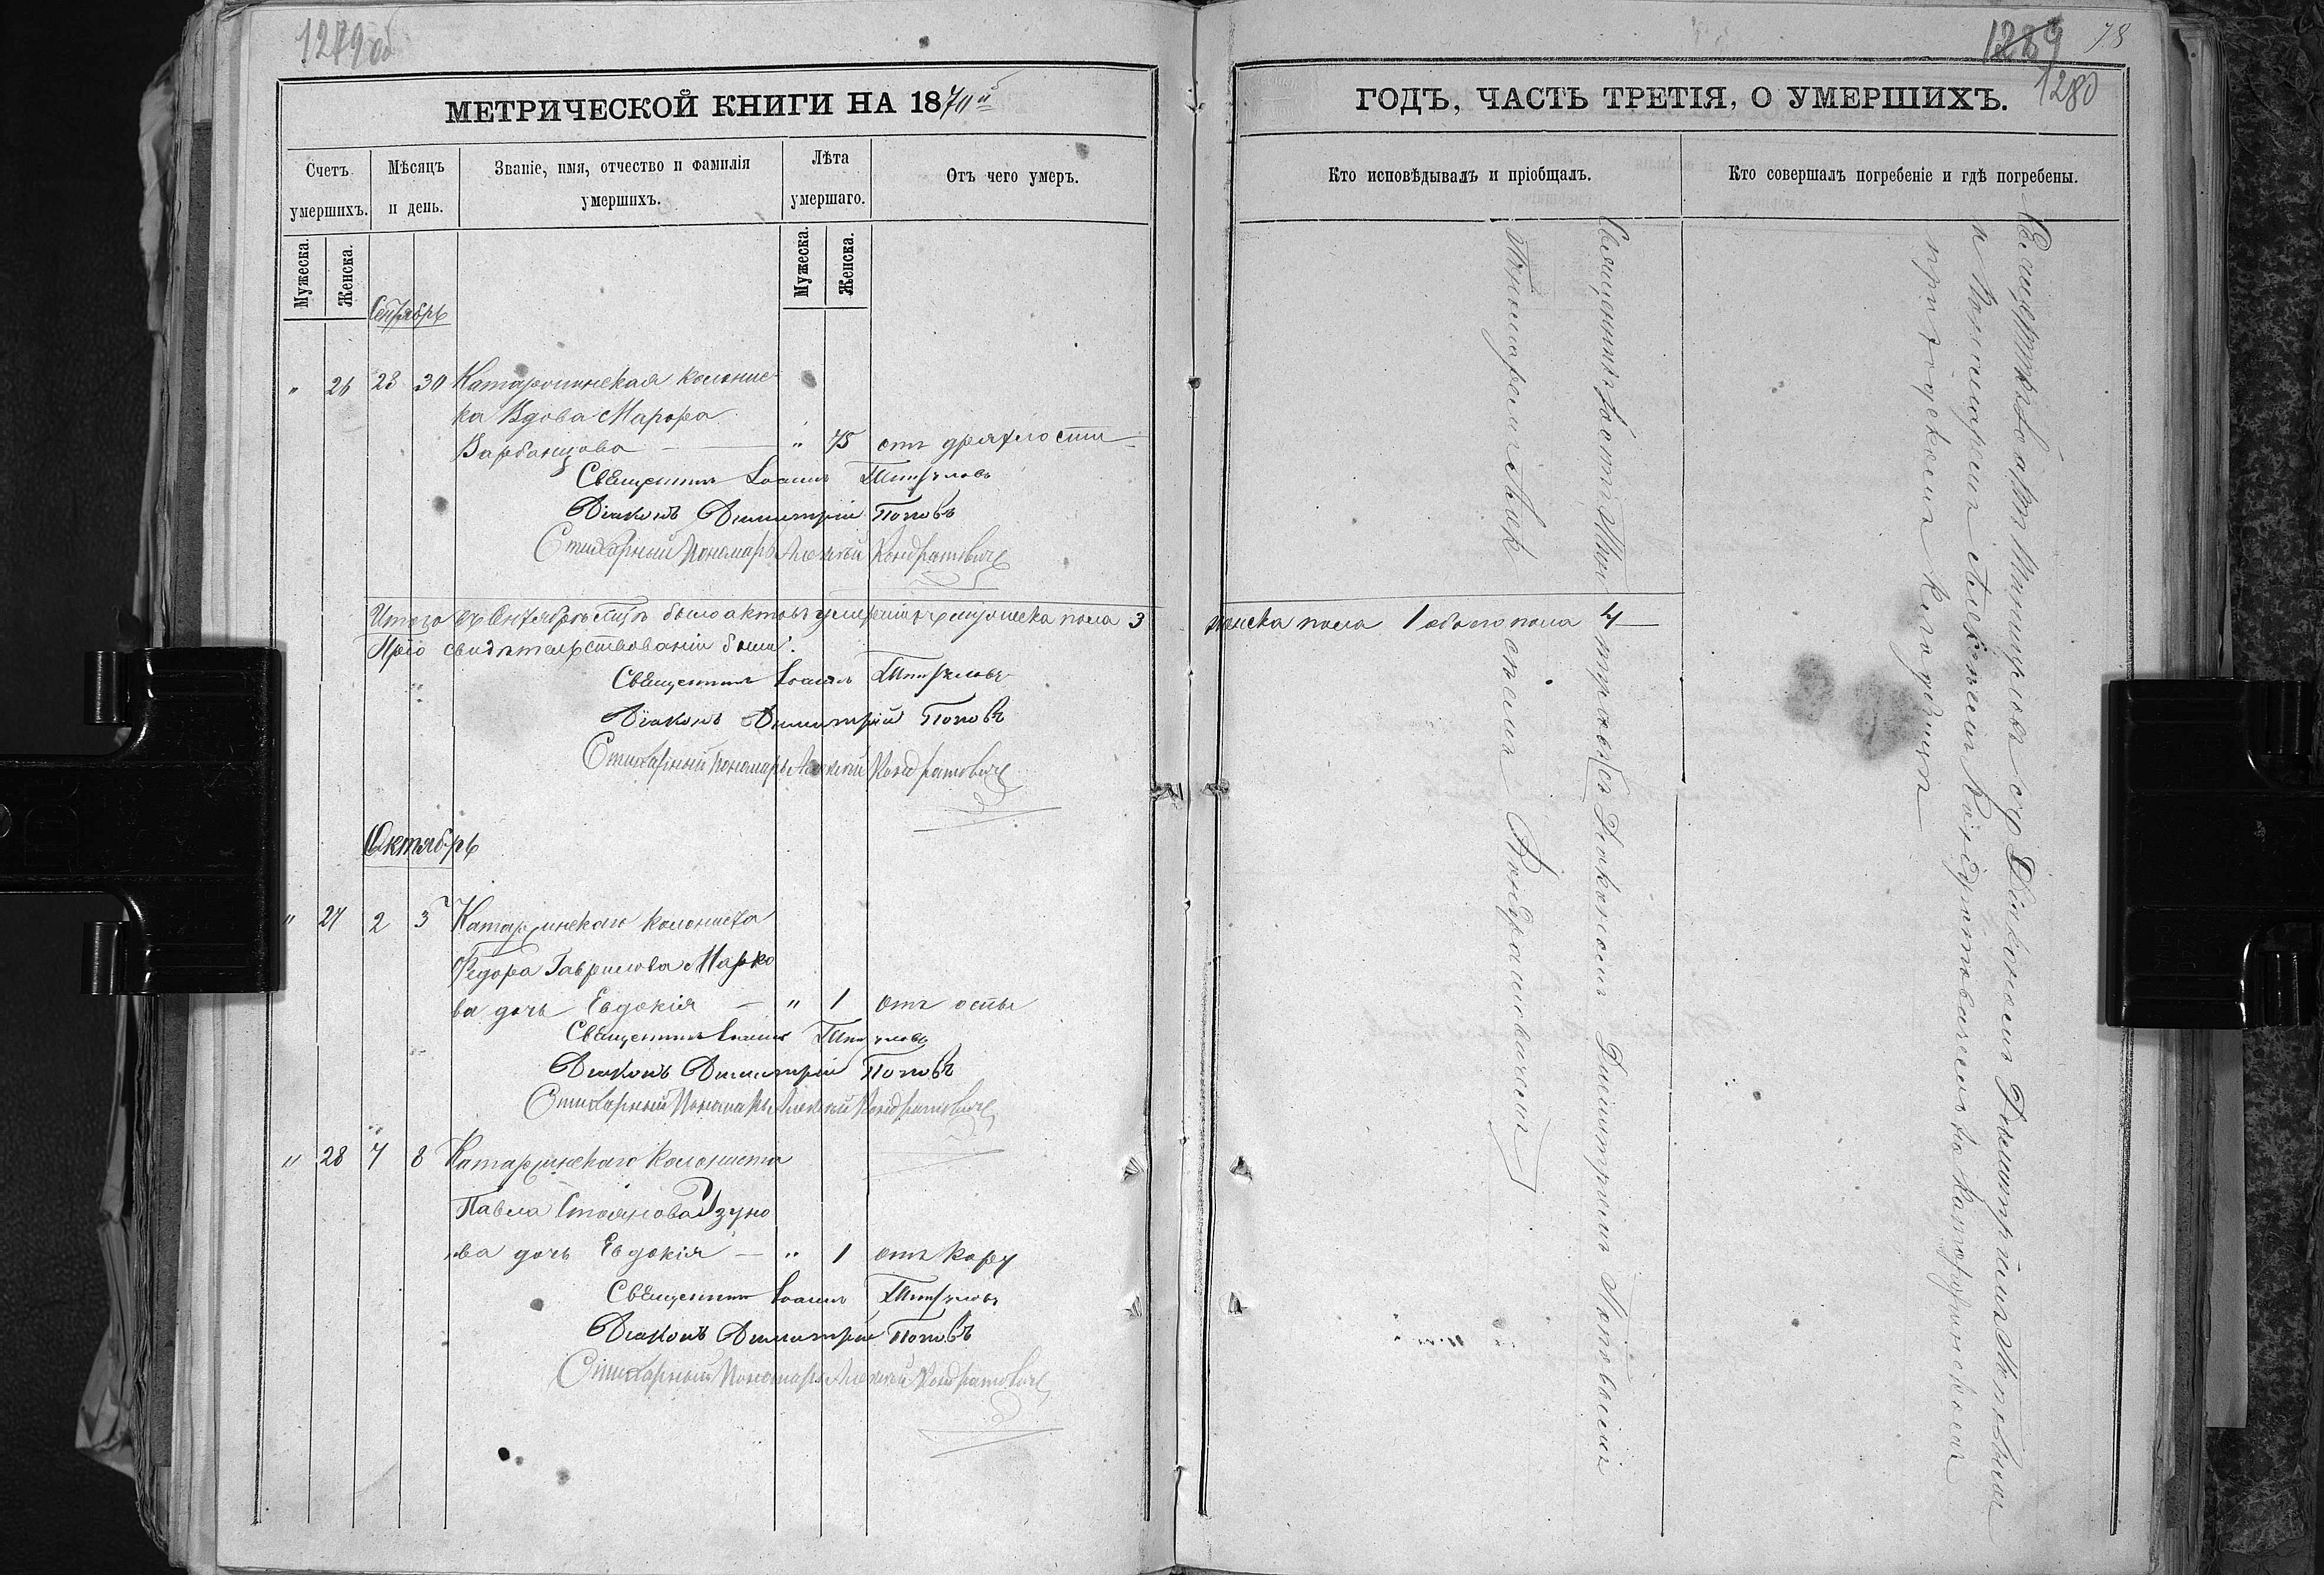 1279 об
МЕТРИЧЕСКОЙ КНИГИ НА 1870 й
Счетъ умершихъ.
Мѣсяцъ и день.
Званіе, имя, отчество и фамилія умершихъ.
Лѣта умершаго.
Отъ чего умеръ.
Мужеска.
Женска.
Мужеска.
Женска.
Сентябрь
" 26 28 30 Катаржинская колонис-
ка Вдова Марфа
Варбанцова — " 75 отъ дряхлости
Священникъ Іоаннъ
Діаконъ Димитрій Поповъ
Стихарный Пономарь Алексѣй Кондратовичъ
Итого въ Сентябрѣ мцѣ было актовъ умершихъ мужеска пола 3
При свидѣтельствованіи были:
Священникъ Іоаннъ
Діаконъ Димитрій Поповъ
Стихарный Пономарь Алексѣй Кондратовичъ
Октябрь
" 27 2 3 Катаржинскаго колониста
Федора Гаврилова Марко
ва дочь Евдокія — " 1 отъ оспы
Священникъ Іоаннъ
Діаконъ Димитрій Поповъ
Стихарный Пономарь Алексѣй Кондратовичъ
" 28 7 8 Катаржинскаго Колониста
Павла Стоянова Узуно
ва дочь Евдокія — " 1 отъ кору
Священникъ Іоаннъ
Діаконъ Димитрій Поповъ
Стихарный Пономарь Алексѣй Кондратовичъ
1289 78
1280
ГОДЪ, ЧАСТЬ ТРЕТІЯ, О УМЕРШИХЪ.
Кто исповѣдывалъ и пріобщалъ.
Кто совершалъ погребеніе и гдѣ погребены.
женска пола 1 обоего пола 4
Священникъ Іоаннъ съ Діакономъ Димитріемъ Поповымъ
Пономаремъ Алексѣемъ Кондратовичемъ
Священникъ Іоаннъ съ Діакономъ Димитріемъ Поповымъ
и Пономаремъ Алексѣемъ Кондратовичемъ на Катаржинскомъ
приходскомъ кладбищѣ